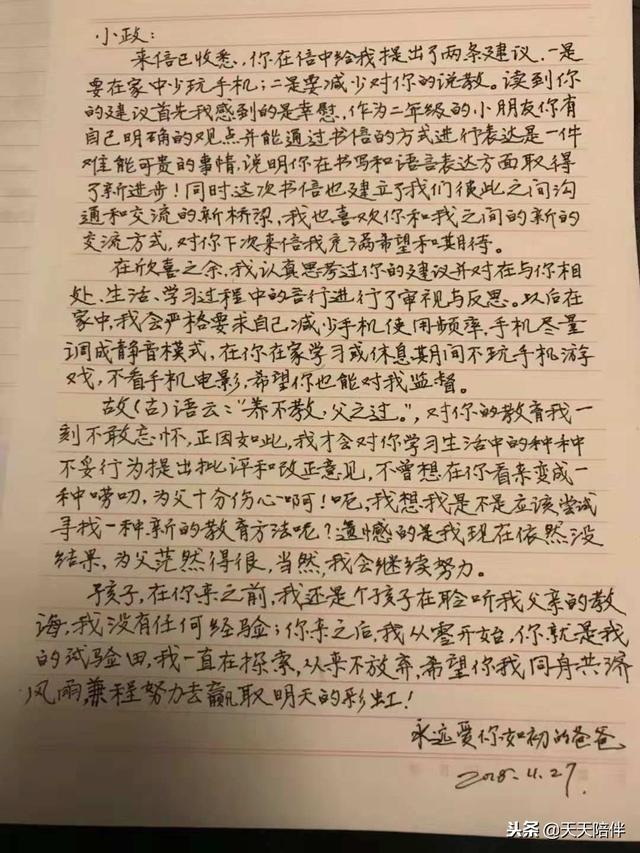 小政：
来信已收悉，你在信中给我提出了两条建议，一是
要在家中少玩手机；二是要减少对你的说教。读到你
的建议首先我感到的是幸慰，作为二年级的小朋友你有
自己明确的观点并能通过书信的方式进行表达是一件
难能可贵的事情，说明你在书写和语言表达方面取得
了新进步！同时这次书信也建立了我们彼此之间沟
通和交流的新桥梁，我也喜欢你和我之间的新的
交流方式，对你下次来信我充满希望和期待。
在欣喜之余，我认真思考过你的建议并对在与你相
处、生活、学习过程中的言行进行了审视与反思。以后在
家中，我会严格要求自己减少手机使用频率，手机尽量
调成静音模式，在你在家学习或休息期间不玩手机游
戏，不看手机电影，希望你也能对我监督。
故(古)语云："养不教，父之过。"，对你的教育我一
刻不敢忘怀，正因如此，我才会对你学习生活中的种种
不妥行为提出批评和改正意见，不曾想在你看来变成一
种唠叨，为父十分伤心啊！呃，我想我是不是应该尝试
寻找一种新的教育方法呢？遗憾的是我现在依然没
结果，为父茫然得很，当然，我会继续努力。
孩子，在你来之前，我还是个孩子在聆听我父亲的教
诲，我没有任何经验；你来之后，我从零开始，你就是我
的试验田，我一直在探索，从来不放弃，希望你我同舟共济
风雨兼程努力去赢取明天的彩虹！
永远爱你如初的爸爸
2018.11.27.
头条@天天陪伴